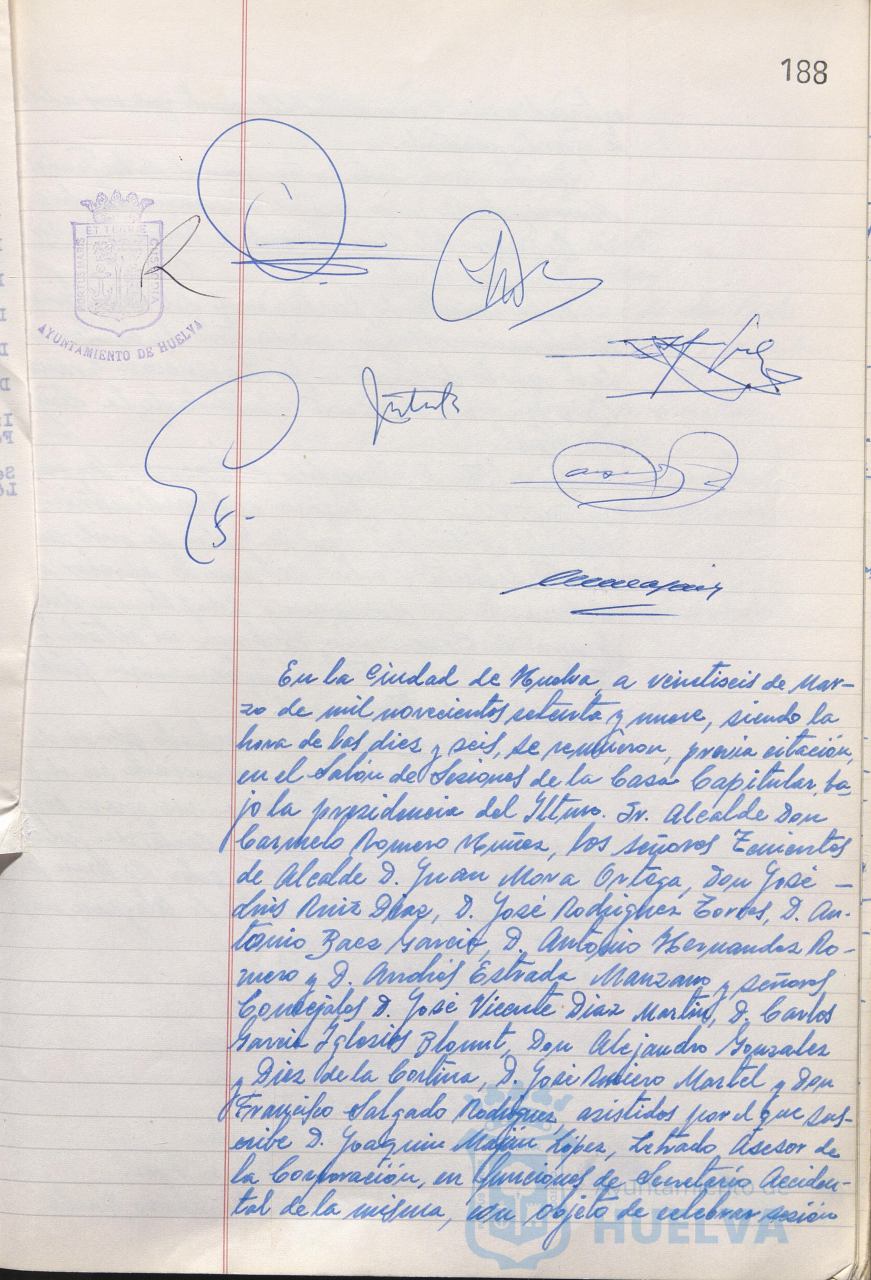 188
ET TERRAE
PORTUS MARIS
CUSTODIA
AYUNTAMIENTO DE HUELVA
En la Ciudad de Huelva, a veintiseis de Mar-
zo de mil novecientos setenta y nueve, siendo la
hora de las diez y seis, se reunieron, previa citación,
en el Salón de Sesiones de la Casa Capitular, ba-
jo la presidencia del Iltmo. Sr. Alcalde Don
Carmelo Romero Núñez, los señores Tenientes
de Alcalde D. Juan Mora Ortega, Don José —
Luis Ruiz Diaz, D. José Rodriguez Torres, D. An-
tonio Baez Garcia, D. Antonio Hernandez Ro-
mero y D. Andrés Estrada Manzano y señores
Concejales D. José Vicente Diaz Martin, D. Carlos
Garcia Iglesias Blount, Don Alejandro Gonzalez
y Diez de la Cortina, D. José Martel y Don
Francisco Salgado Rodriguez, asistidos por el que sus-
cribe D. Joaquin López, Letrado Asesor de
la Corporación, en funciones de Secretario Acciden-
tal de la misma, con objeto de celebrar sesión
Ayuntamiento de
HUELVA